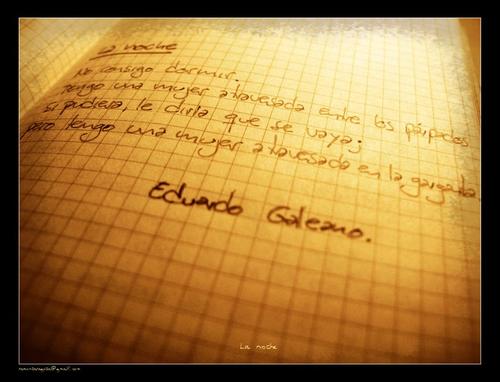 La noche
No consigo dormir.
Tengo una mujer atravesada entre los párpados
si pudiera, le diría que se vaya;
pero tengo una mujer atravesada en la garganta.
Eduardo Galeano.
La noche